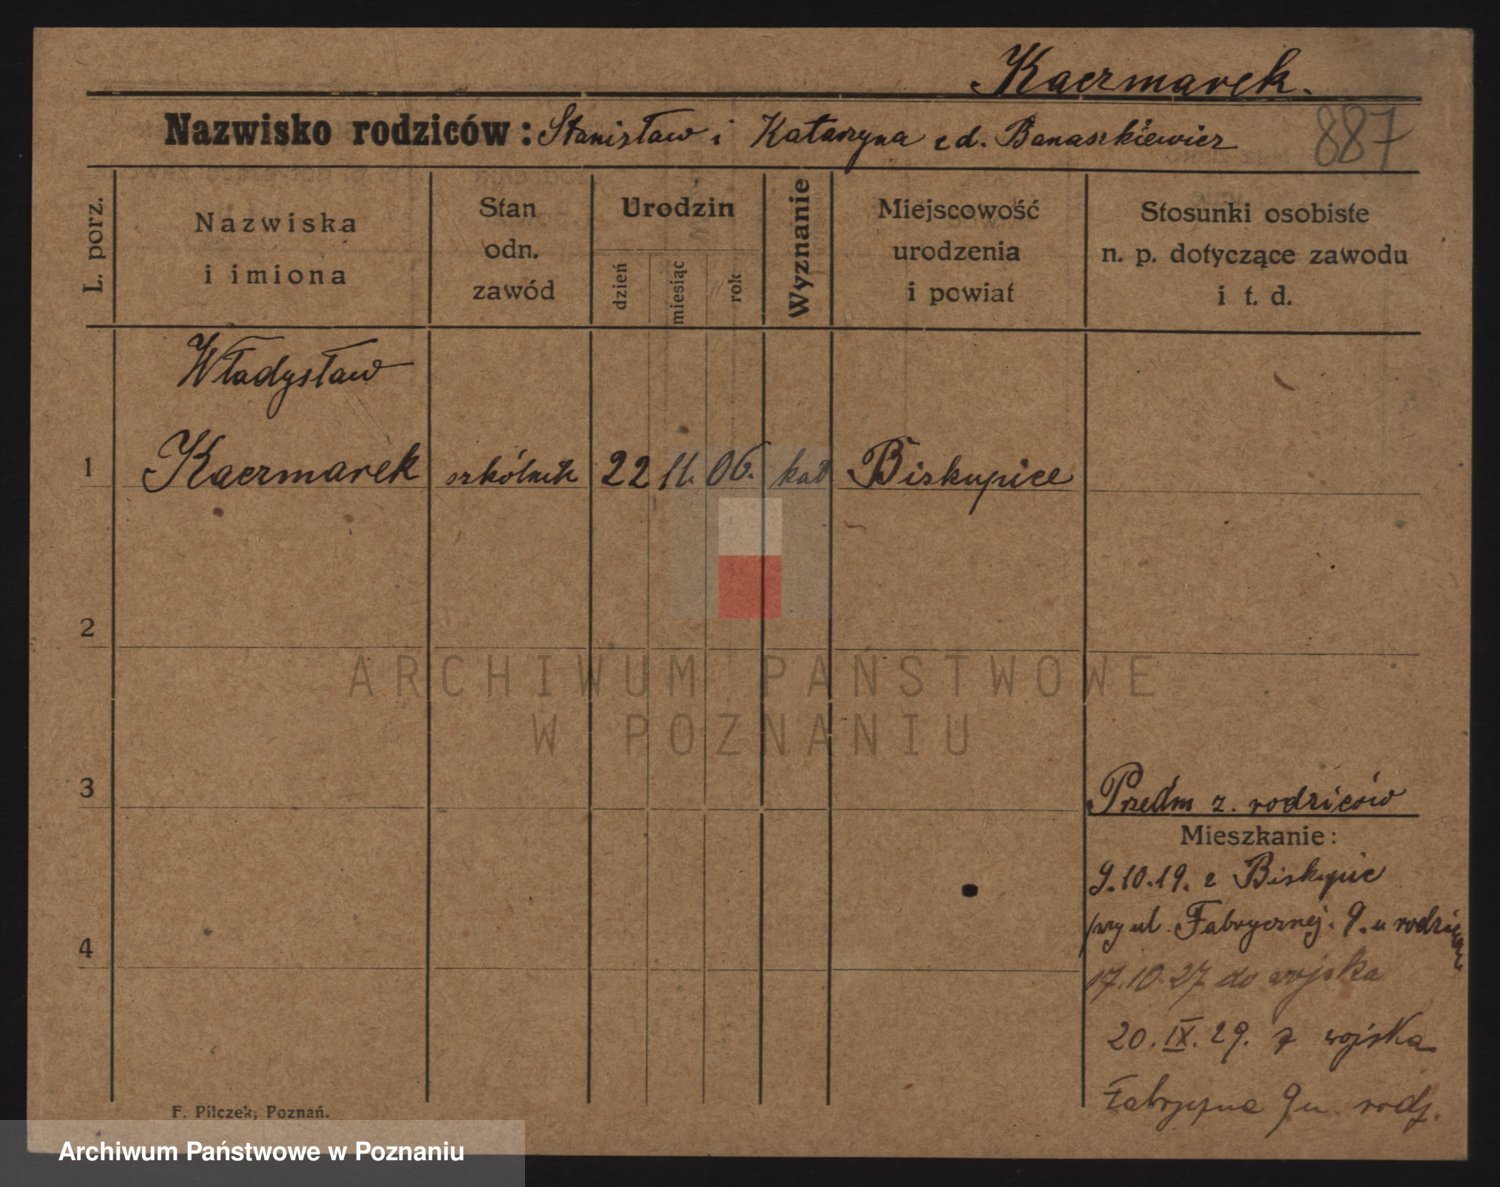 Kaczmarek.
Nazwisko rodziców: Stanisław i Katarzyna z d. Banaszkiewicz
887
L. porz.
Nazwiska
i imiona
Stan
odn.
zawód
Urodzin
dzień
miesiąc
rok
Wyznanie
Miejscowość
urodzenia
i powiat
Stosunki osobiste
n. p. dotyczące zawodu
i t. d.
Władysław
1 Kaczmarek szkólnik 22 11. 06. kat Biskupice
2
ARCHIWUM PAŃSTWOWE
W POZNANIU
3
z. rodziców
Mieszkanie:
9.10.19. z Biskupic
przy ul. Fabrycznej. 9. u
4
17.10.27 do wojska
20. IX. 29. z wojska
Fabryczna 9 u rodz.
F. Pilczek, Poznań.
Archiwum Państwowe w Poznaniu